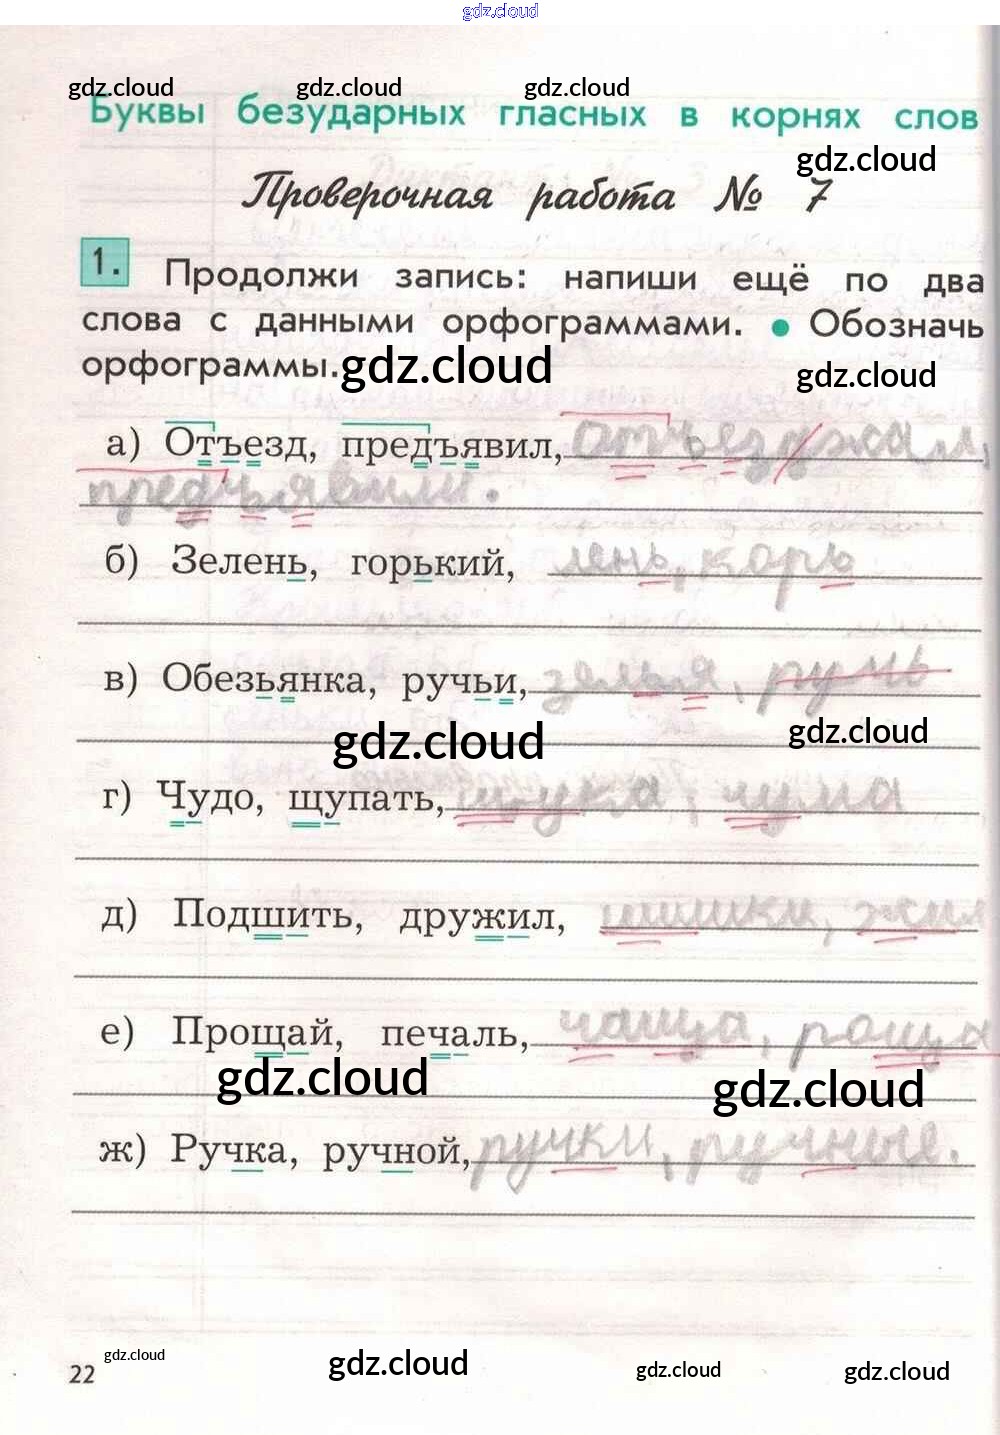 gdz.cloud
gdz.cloud gdz.cloud gdz.cloud
Буквы безударных гласных в корнях слов
gdz.cloud
Проверочная работа № 7
1. Продолжи запись: напиши ещё по два
слова с данными орфограммами. ● Обозначь
орфограммы. gdz.cloud gdz.cloud
а) Отъезд, предъявил, отъезджал,
предъявили.
б) Зелень, горький, лень, корь
в) Обезьянка, ручьи, земья, румь
gdz.cloud gdz.cloud
г) Чудо, щупать, щука, чума
д) Подшить, дружил, шишки, жил
е) Прощай, печаль, чаща, роща
gdz.cloud gdz.cloud
ж) Ручка, ручной, ручки, ручные.
22 gdz.cloud gdz.cloud gdz.cloud gdz.cloud